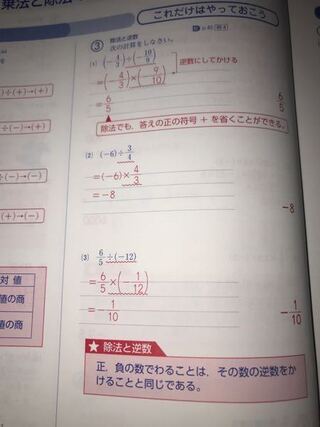 乗法と除法
これだけはやっておこう
③ 乗法と除法
次の計算をしなさい。
(1) (-4/3)÷(-10/9)
=(-4/3)×(-9/10)
逆数にしてかける
=6/5
6/5
除法でも、答えの正の符号 + を省くことができる。
(2) (-6)÷3/4
=(-6)×4/3
=-8
-8
(3) 6/5÷(-12)
=6/5×(-1/12)
=-1/10
-1/10
★ 除法と逆数
正、負の数でわることは、その数の逆数をか
けることと同じである。
÷(+)→(+)
÷(-)→(+)
÷(-)→(-)
(+)→(-)
対 値
値の商
値の商